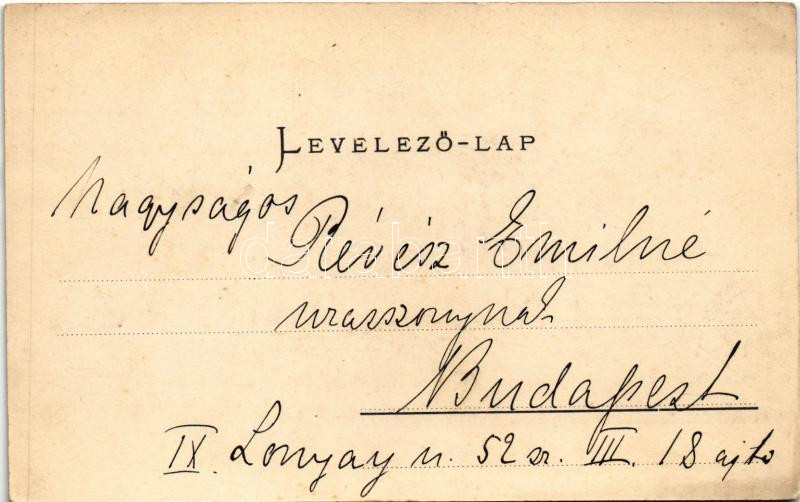 LEVELEZŐ-LAP
Nagyságos
Révész Emilné
uraszonynak
Budapest
IX. Lonyay u. 52 sz. III. 18 ajto